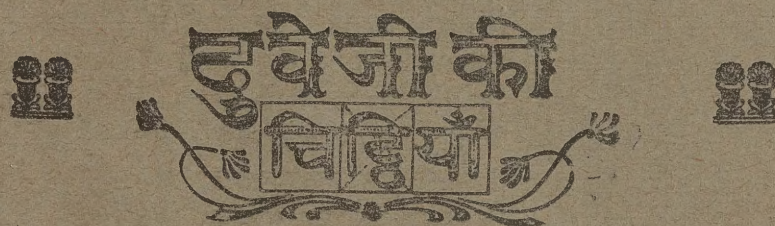 दुवेजी की
चिट्ठियाँ